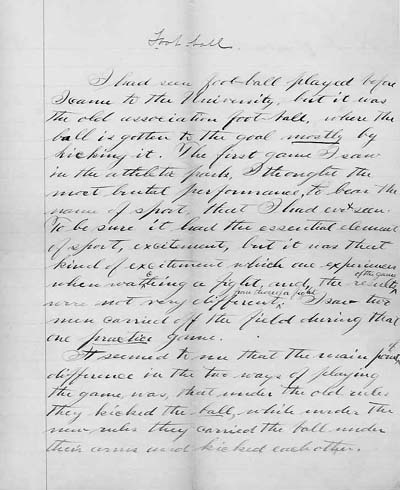 Foot ball.
I had seen foot-ball played before
I came to the University, but it was
the old association foot ball, where the
ball is gotten to the goal mostly by
kicking it. The first game I saw
in the athletic park, I thought the
most brutal performance, to bear the
name of sport, that I had ever seen.
To be sure it had the essential element
of sport, excitement, but it was that
kind of excitement which one experiences
when watching a fight, and, the results of the game
were not very different from those of a fight. I saw two
men carried off the field during that
one practice game.
It seemed to me that the main point of
difference in the two ways of playing
the game, was, that under the old rules
they kicked the ball, while under the
new rules they carried the ball under
their arms and kicked each other.